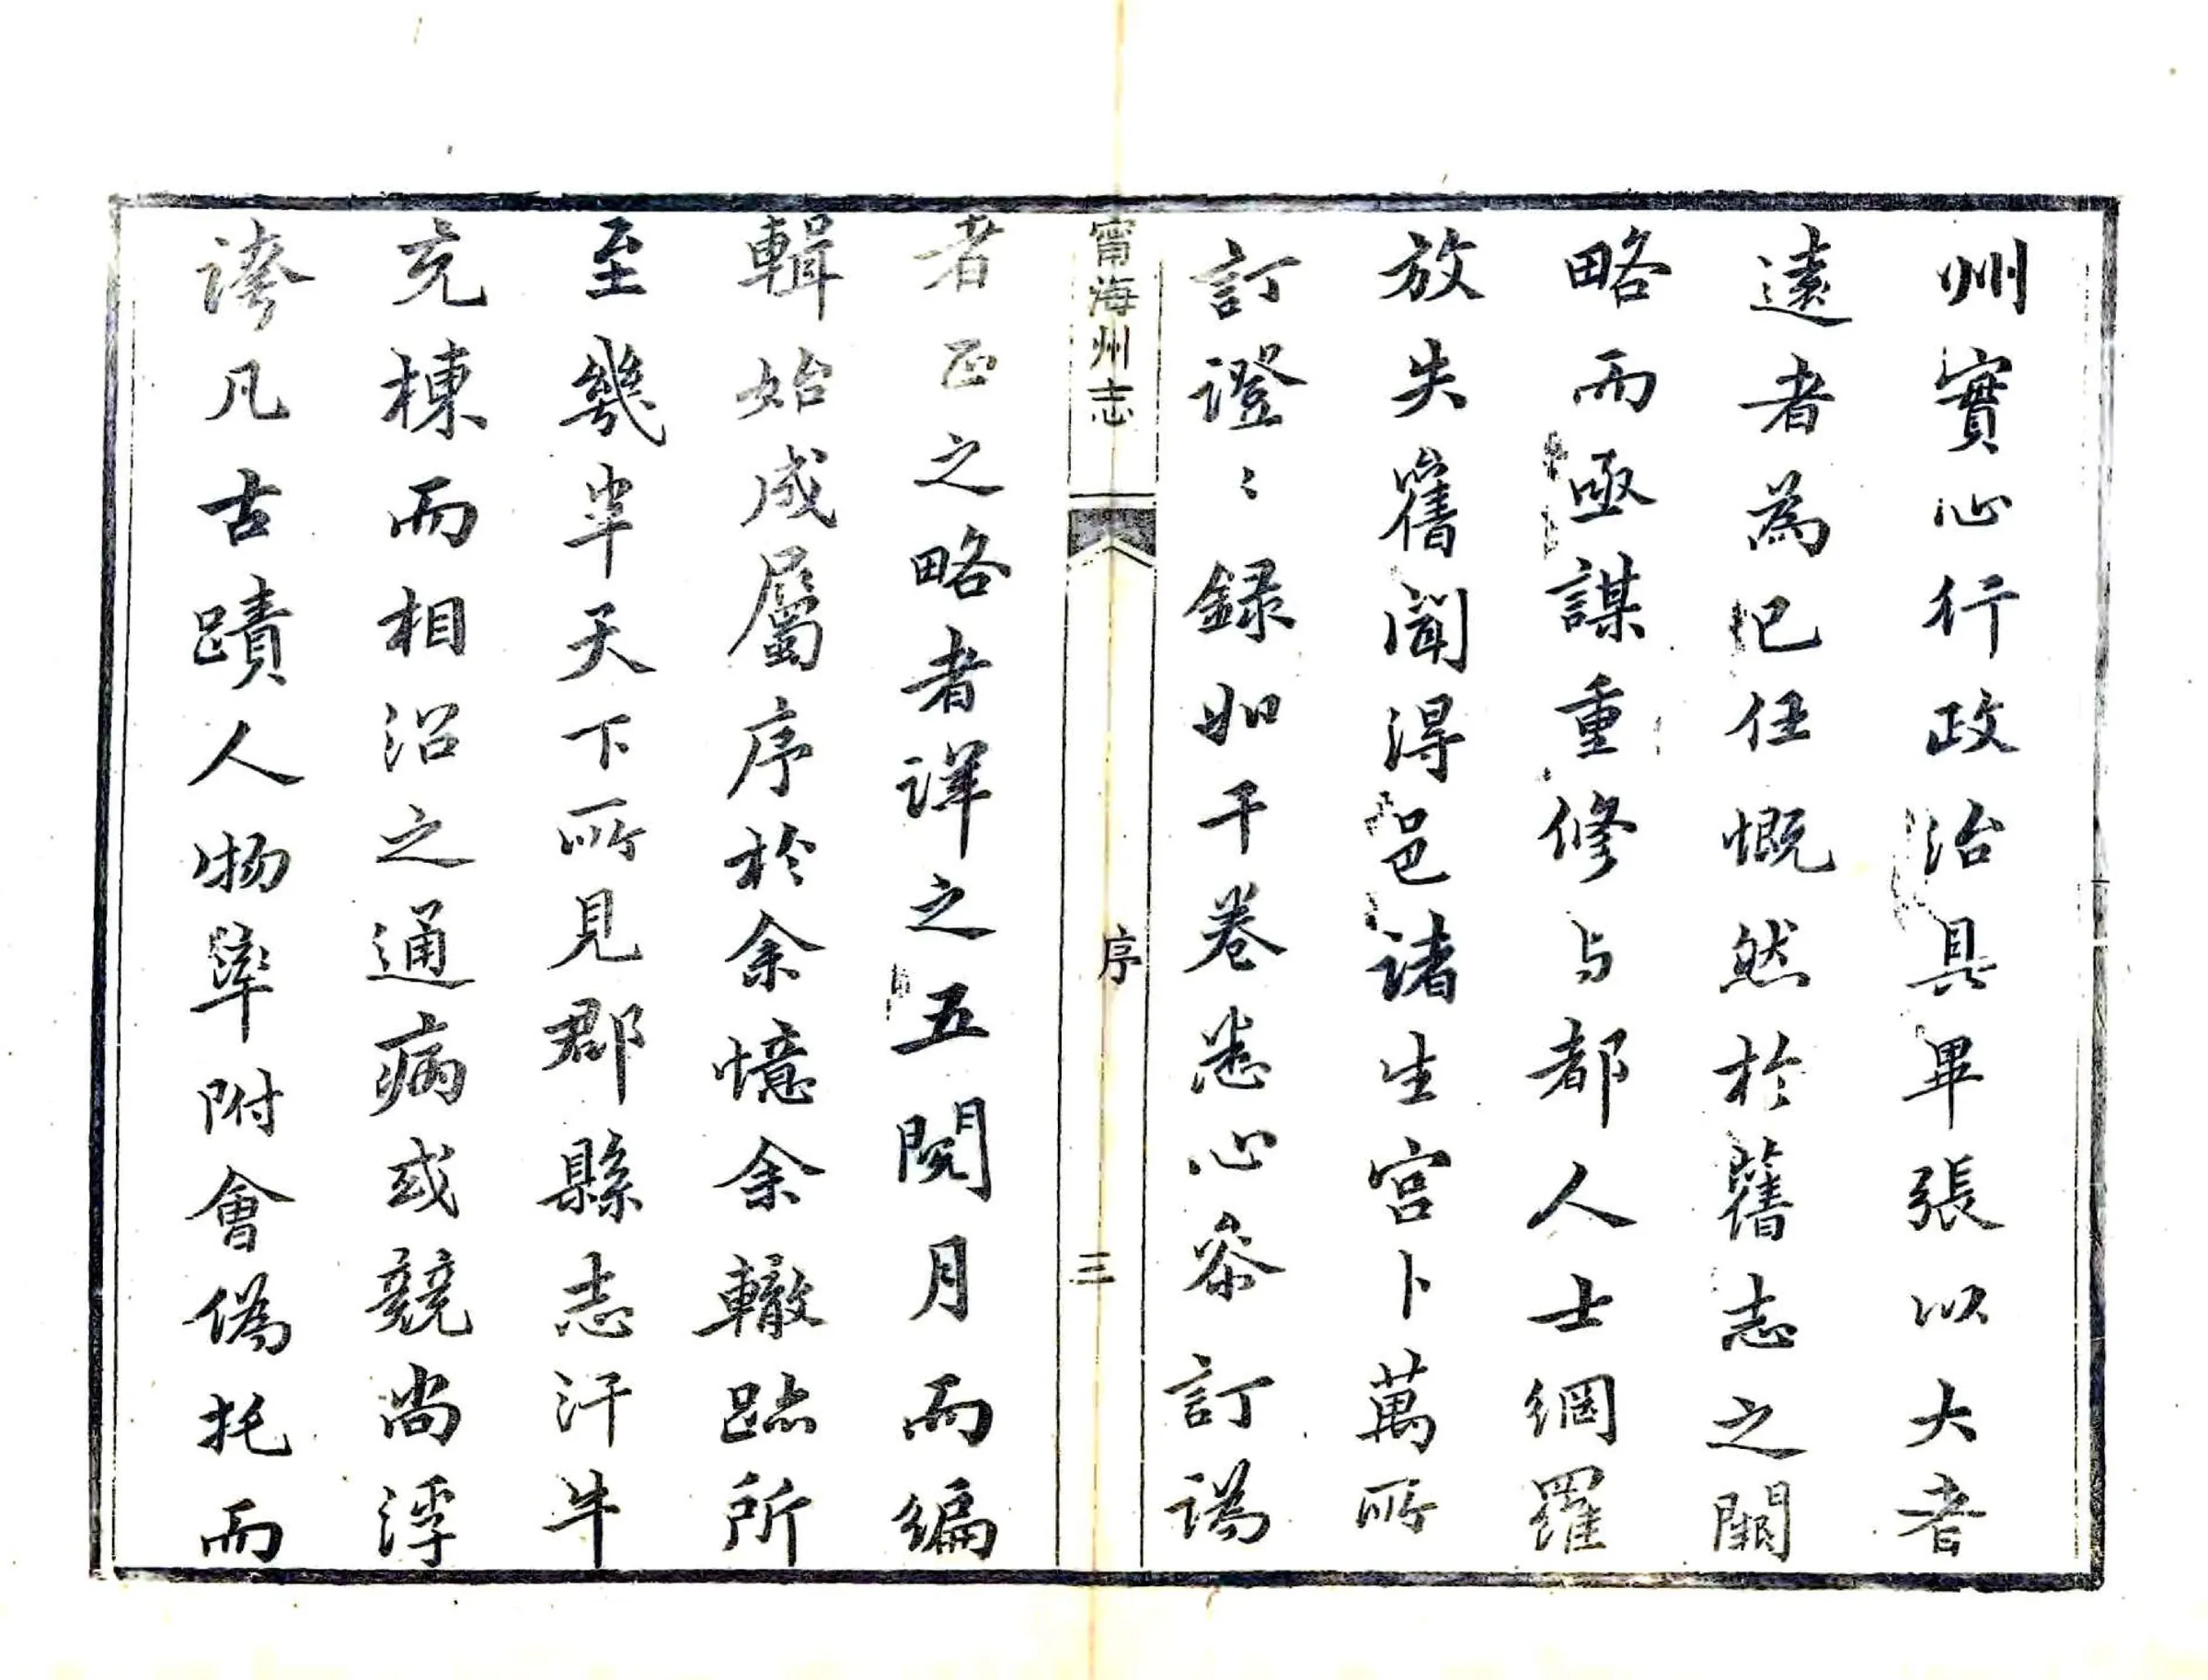 州實心行政治具畢張以大者
遠者為己任慨然於舊志之闕
略而亟謀重修与都人士網羅
放失舊聞得邑諸生宮卜萬所
訂證〻録如干卷悉心叅訂譌
寗海州志
序
三
者正之略者詳之五閱月而編
輯始成屬序於余憶余轍跡所
至幾半天下所見郡縣志汗牛
充棟而相沿之通病或競尚浮
誇凡古蹟人物率附會偽托而